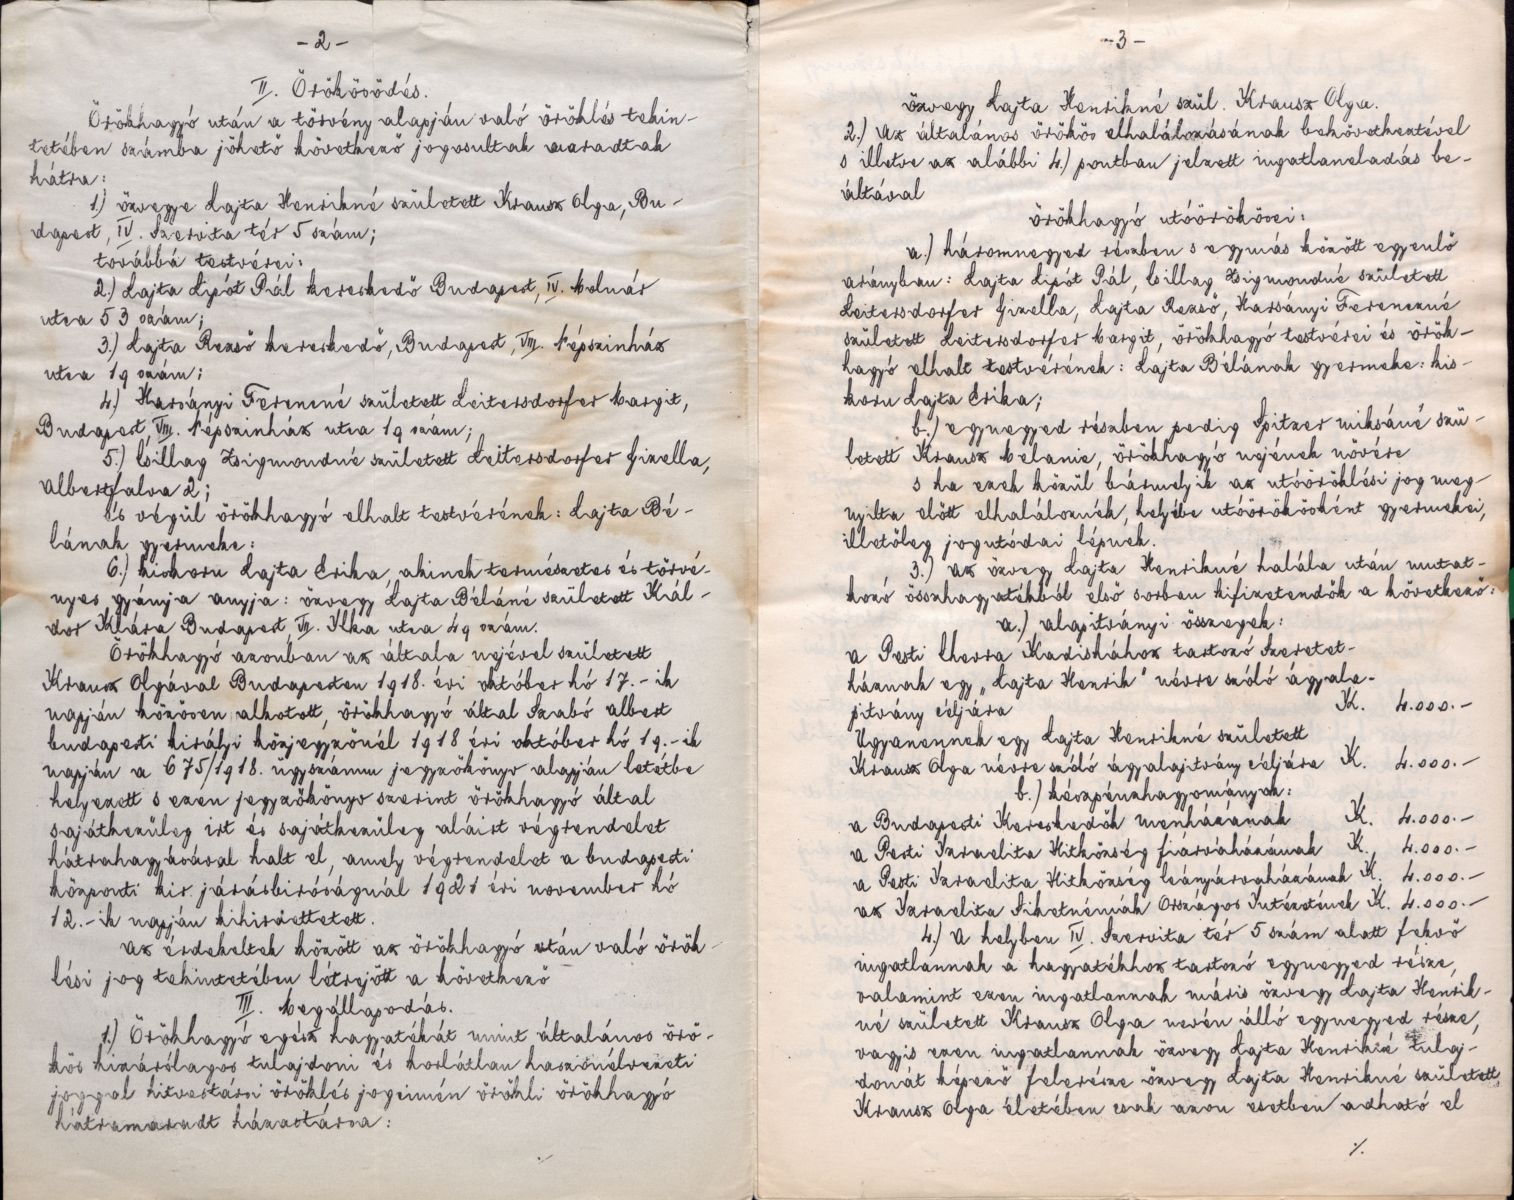 - 2 -
II. Örökösödés.
Örökhagyó után a törvény alapján való öröklés tekin-
tetében számba jöhető következő jogosultak maradtak
hátra:
1.) özvegye Lajta Henrikné született Krausz Olga, Bu-
dapest, IV. Szervita tér 5 szám;
továbbá testvérei:
2.) Lajta Lipót Pál kereskedő Budapest, IV. Molnár
utca 53 szám;
3.) Lajta Rezső kereskedő, Budapest, VIII. Népszinház
utca 19 szám;
4.) Harsányi Ferencné született Leitersdorfer Margit,
Budapest, VIII. Népszinház utca 19 szám;
5.) Csillag Zsigmondné született Leitersdorfer Gizella,
Albertfalva 2;
és végül örökhagyó elhalt testvérének: Lajta Bé-
lának gyermeke:
6.) kiskoru Lajta Erika, akinek természetes és törvé-
nyes gyámja anyja: özvegy Lajta Béláné született Kál-
dor Klára Budapest, VII. Ilka utca 49 szám.
Örökhagyó azonban az általa nejével született
Krausz Olgával Budapesten 1918. évi október hó 17.-ik
napján közösen alkotott, örökhagyó által Szabó Albert
budapesti királyi közjegyzőnél 1918 évi október hó 19.-ik
napján a 675/1918. ügyszámu jegyzőkönyv alapján letétbe
helyezett s ezen jegyzőkönyv szerint örökhagyó által
sajátkezüleg irt és sajátkezüleg aláirt végrendelet
hátrahagyásával halt el, amely végrendelet a budapesti
központi kir. járásbiróságnál 1921 évi november hó
12.-ik napján kihirdettetett.
Az érdekeltek között az örökhagyó után való örök-
lési jog tekintetében létrejött a következő
III. Megállapodás.
1.) Örökhagyó egész hagyatékát mint általános örö-
kös kizárólagos tulajdoni és korlátlan haszonélvezeti
joggal hitvestársi öröklés jogcimén örökli örökhagyó
hátramaradt házastársa:
- 3 -
özvegy Lajta Henrikné szül. Krausz Olga.
2.) Az általános örökös elhalálozásának bekövetkeztével
s illetve az alábbi 4.) pontban jelzett ingatlaneladás be-
áltával
örökhagyó utóörökösei:
a.) háromnegyed részben s egymás között egyenlő
arányban: Lajta Lipót Pál, Csillag Zsigmondné született
Leitersdorfer Gizella, Lajta Rezső, Harsányi Ferenczné
született Leitersdorfer Margit, örökhagyó testvérei és örök-
hagyó elhalt testvérének: Lajta Bélának gyermeke: kis-
koru Lajta Erika;
b.) egynegyed részben pedig Spitzer Miksáné szü-
letett Krausz Melanie, örökhagyó nejének nővére
s ha ezek közül bármelyik az utóöröklési jog meg-
nyilta előtt elhaláloznék, helyébe utóörökösként gyermekei,
illetőleg jogutódai lépnek.
3.) Az özvegy Lajta Henrikné halála után mutat-
kozó összhagyatékból első sorban kifizetendők a következő:
a.) alapitványi összegek:
a Pesti Chevra Kadisához tartozó Szeretet-
háznak egy "Lajta Henrik" névre szóló ágyala-
pitvány céljára K. 4.000.-
Ugyanennek egy Lajta Henrikné született
Krausz Olga névre szóló ágyalapitvány céljára K. 4.000.-
b.) készpénzhagyományok:
a Budapesti Kereskedők menházának K. 4.000.-
a Pesti Izraelita Hitközség fiárvaházának K. 4.000.-
a Pesti Izraelita Hitközség leányárvaházának K. 4.000.-
az Izraelita Siketnémák Országos Intézetének K. 4.000.-
4.) A helyben IV. Szervita tér 5 szám alatt fekvő
ingatlannak a hagyatékhoz tartozó egynegyed része,
valamint ezen ingatlannak máris özvegy Lajta Henrik-
né született Krausz Olga nevén álló egynegyed része,
vagyis ezen ingatlannak özvegy Lajta Henrikné tulaj-
donát képező felerésze özvegy Lajta Henrikné született
Krausz Olga életében csak azon esetben adható el
./.